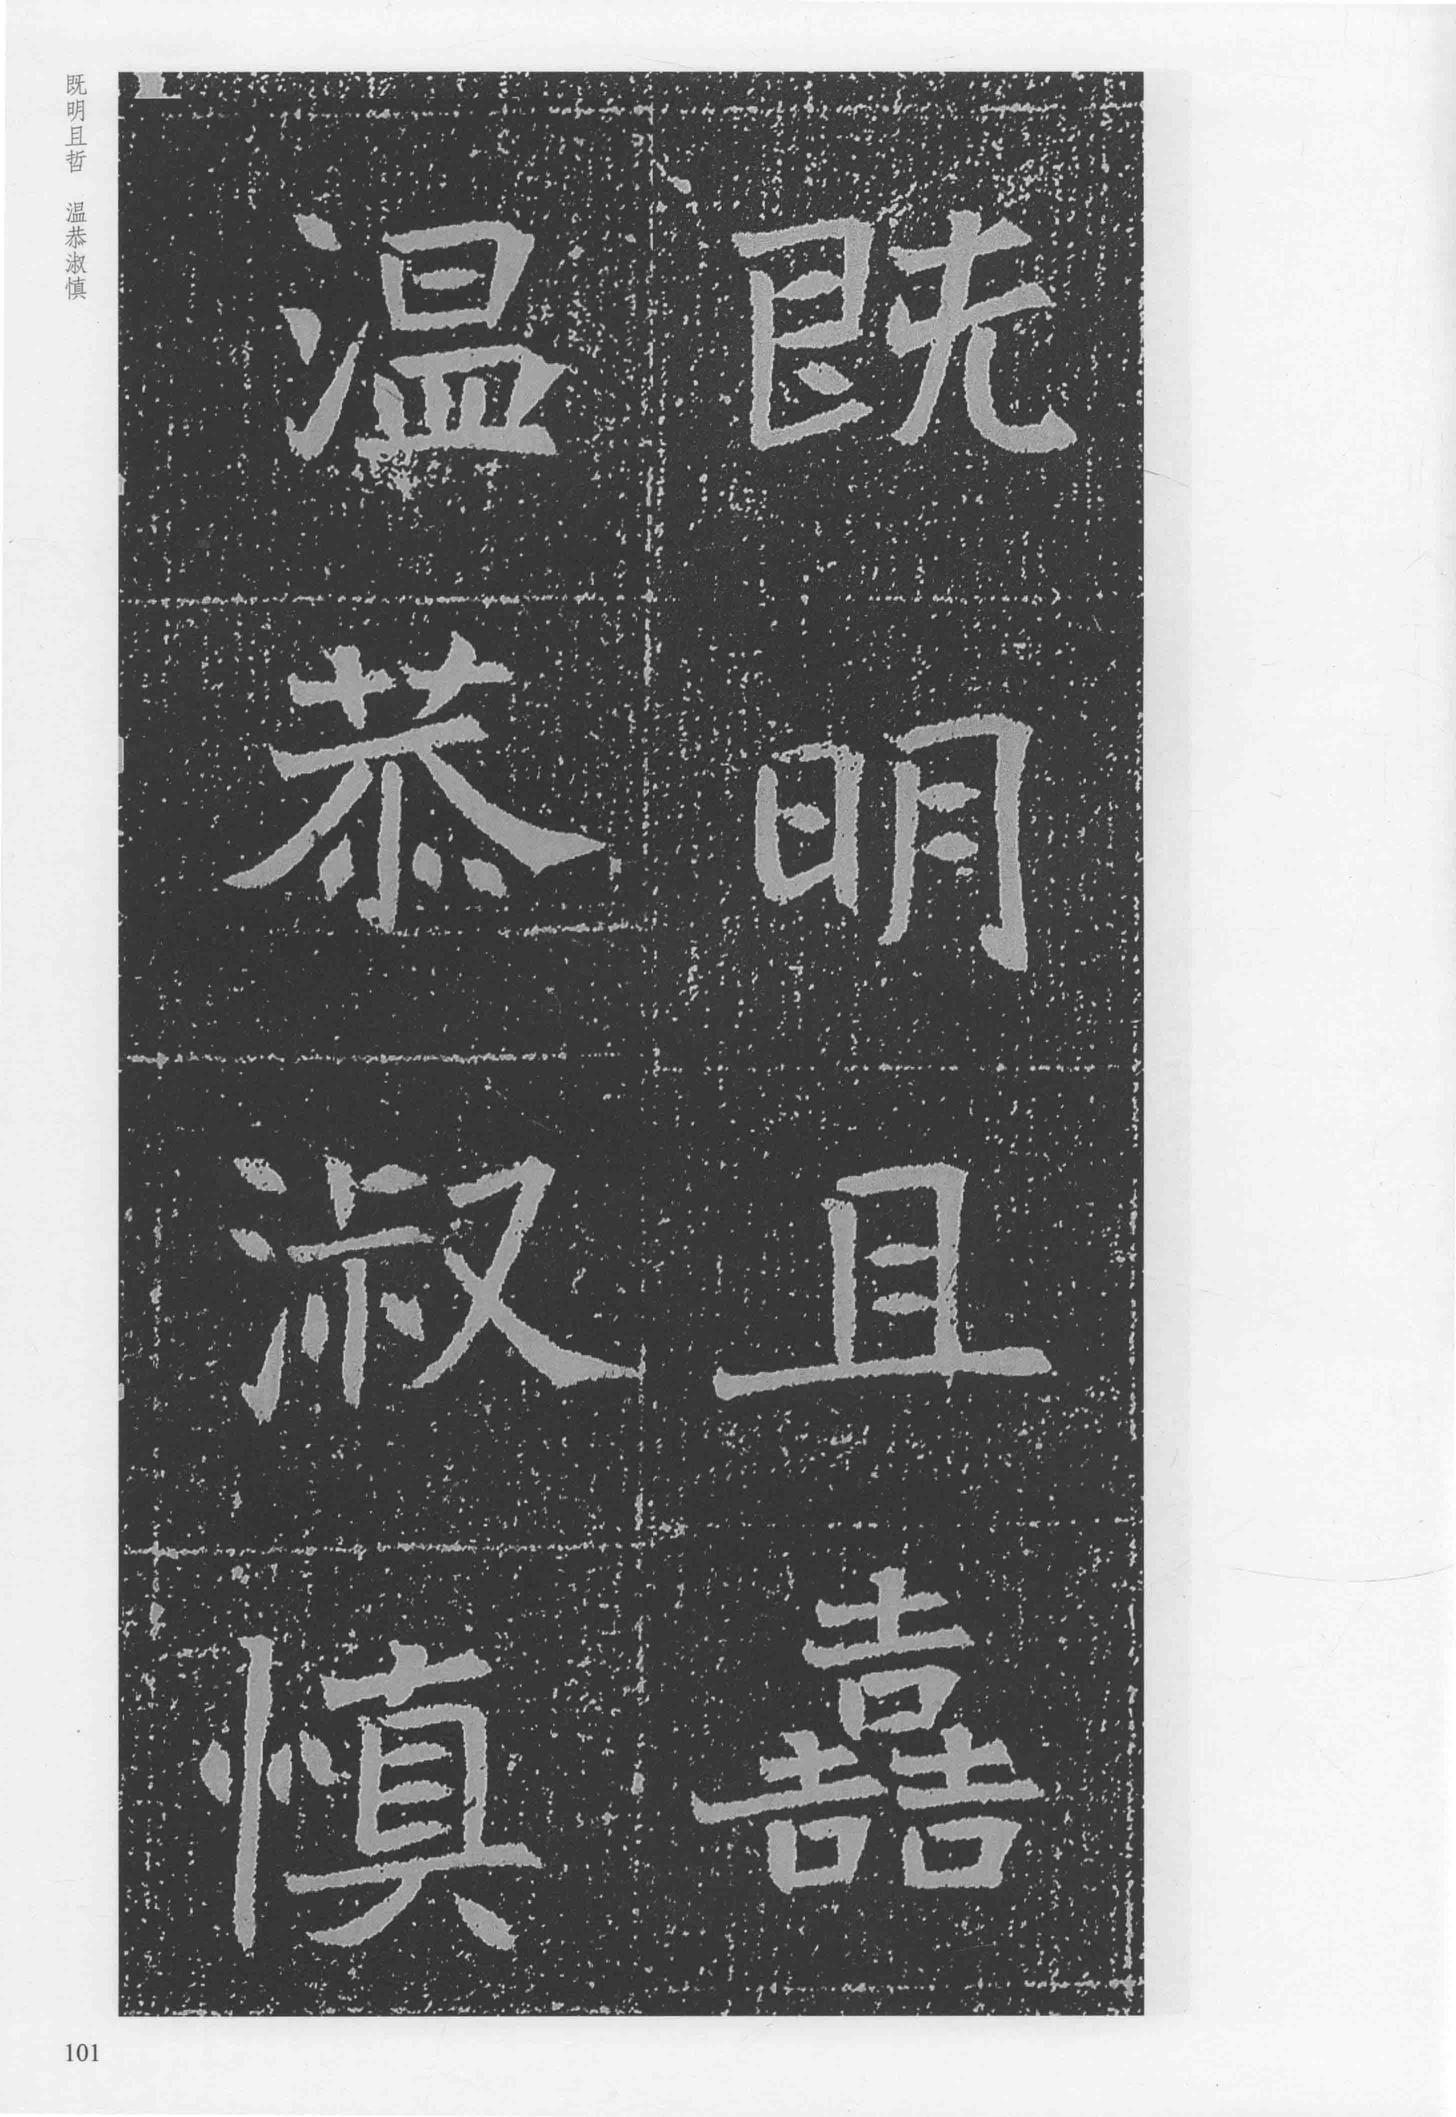 既明且嚞
温恭淑慎
既明且哲 温恭淑慎
101